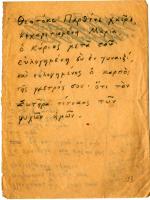 Θεοτόκε Παρθένε χαῖρε
κεχαριτωμένη Μαρία
ὁ Κύριος μετά σοῦ
εὐλογημένη σὺ ἐν γυναιξί,
καὶ εὐλογημένος ὁ καρπὸς
τῆς γαστρός σου· ὅτι τὸν
Σωτῆρα τέτοκας τῶν
ψυχῶν ἡμῶν.